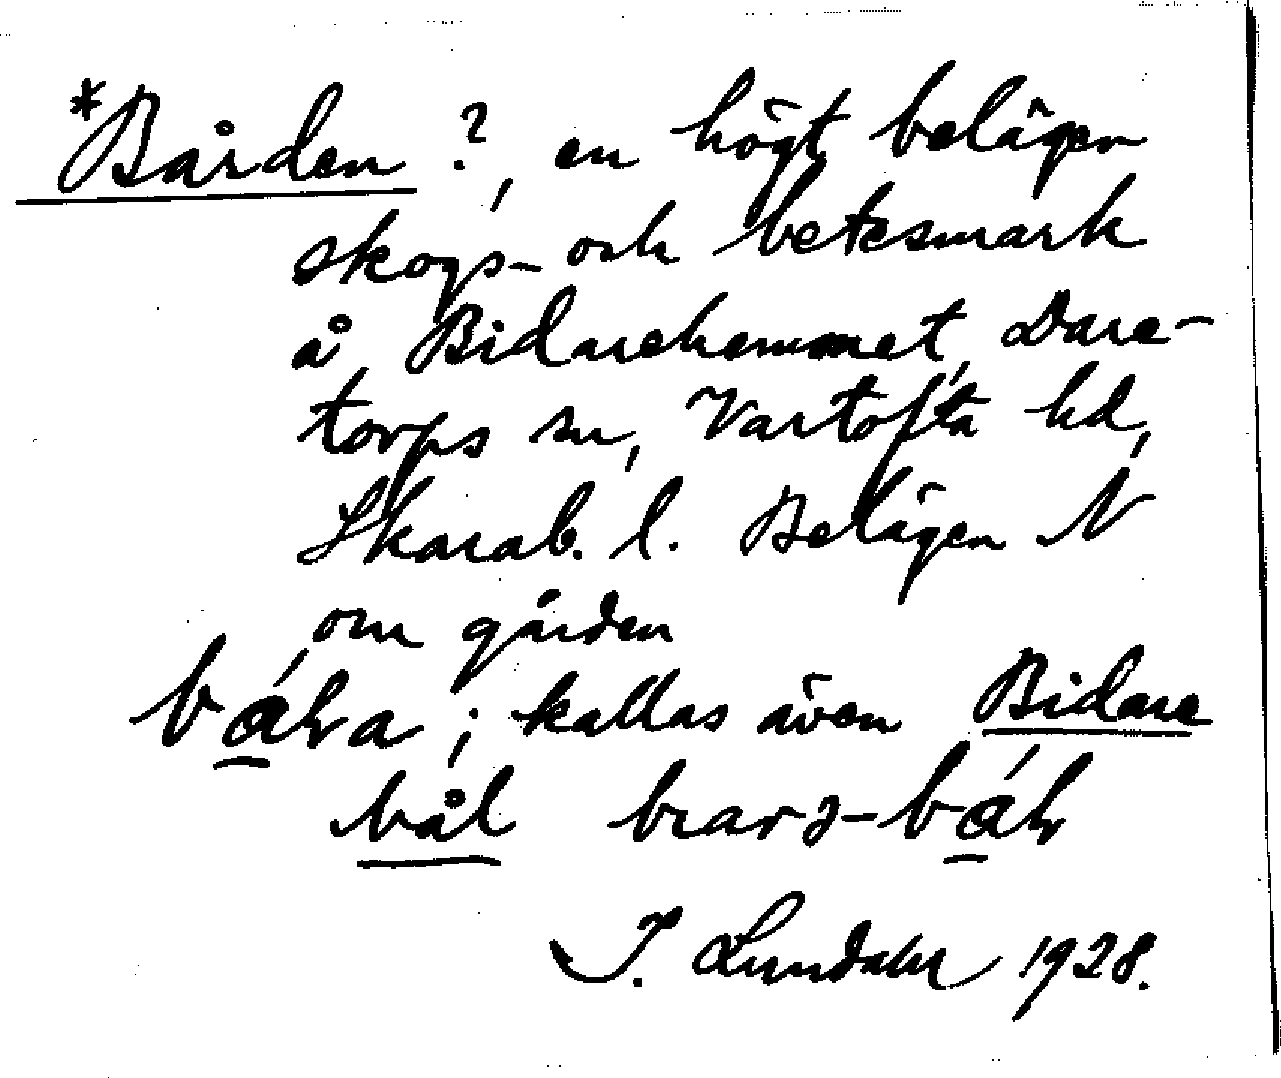 *Bården ?, en högt belägen
skogs- och betesmark
å Bidarehemmet, Dare-
torps sn, Vartofta hd,
Skarab. l. Belägen N
om gården
kallas även Bidare
bål
I. Lundahl 1928.